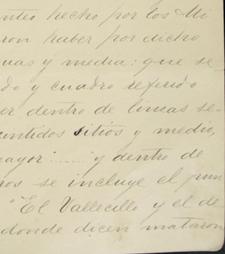 ntes hecho por los Mi
ron haber por dicho
uas y media: que se
do y cuadro referido
er dentro de lineas se-
untidos sitios y medio,
mayor" ...... y dentro de
ros se incluye el pun
"El Vallecillo y el de
donde dicen mataron